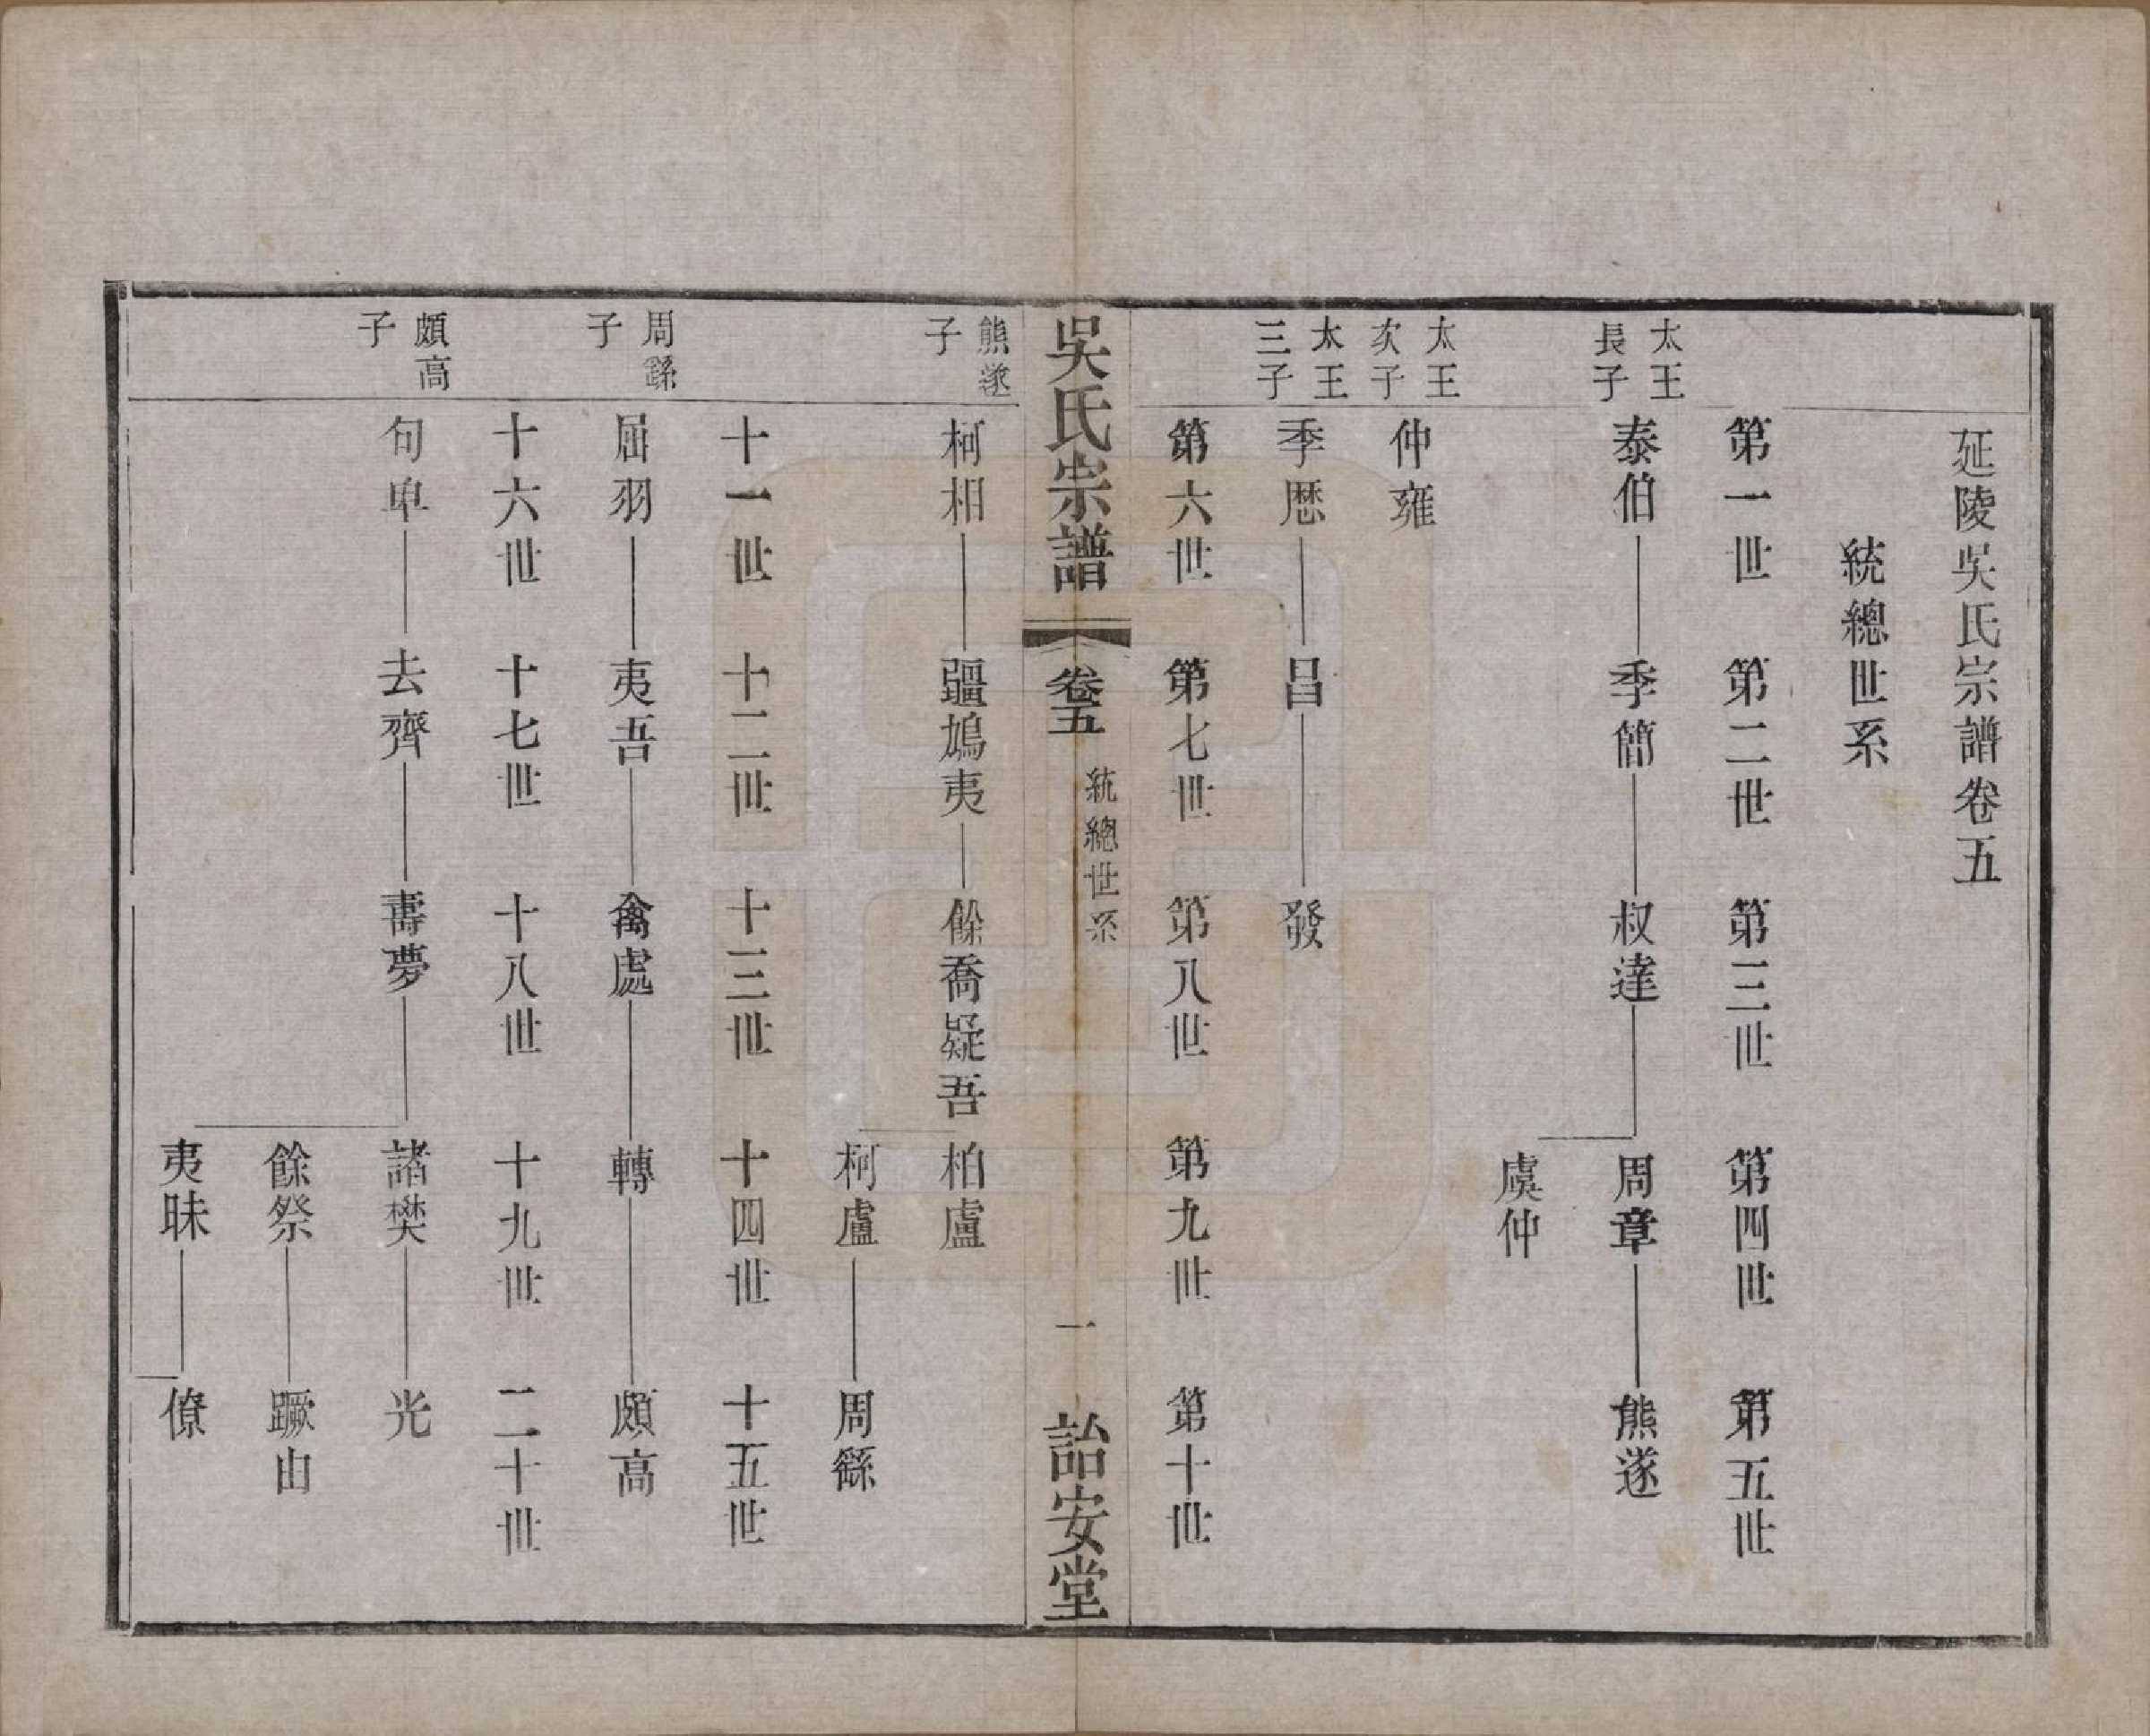 延陵吳氏宗譜卷五
統總世系
第一世 第二世 第三世 第四世 第五世
太王長子 泰伯 季簡 叔達 周章 熊遂
虞仲
太王次子 仲雍
太王三子 季歷 昌 發
第六世 第七世 第八世 第九世 第十世
吳氏宗譜 卷五 統總世系 一 詒安堂
熊遂子 柯相 疆鳩夷 餘喬疑吾 柏盧
柯盧 周繇
十一世 十二世 十三世 十四世 十五世
周繇子 屈羽 夷吾 禽處 轉 頗高
十六世 十七世 十八世 十九世 二十世
頗高子 句卑 去齊 壽夢 諸樊 光
餘祭 蹶由
夷昧 僚